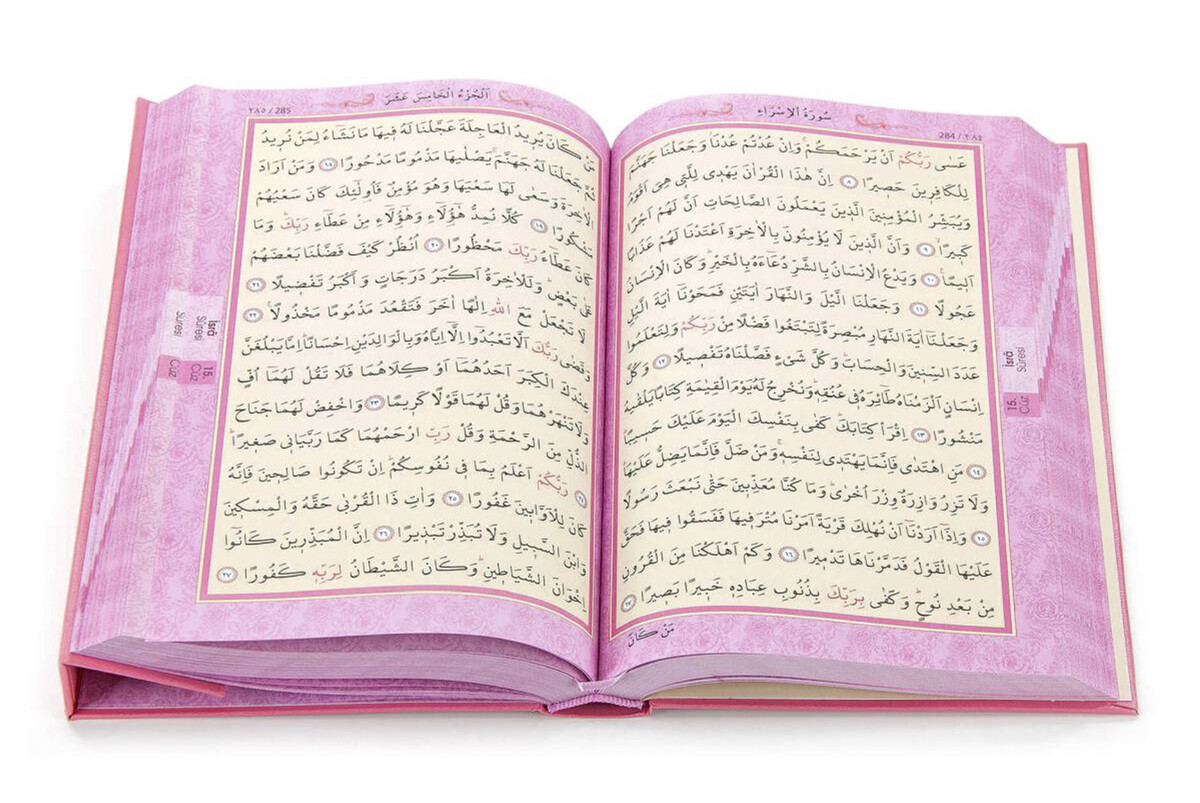 سُورَةُ الْاِسْرَاءِ
284 / ٢٨٤
عَسٰى رَبُّكُمْ اَنْ يَرْحَمَكُمْۚ وَاِنْ عُدْتُمْ عُدْنَاۢ وَجَعَلْنَا جَهَنَّمَ
لِلْكَافِرٖينَ حَصٖيرًا ﴿٨﴾ اِنَّ هٰذَا الْقُرْاٰنَ يَهْدٖى لِلَّتٖى هِىَ اَقْوَمُ
وَيُبَشِّرُ الْمُؤْمِنٖينَ الَّذٖينَ يَعْمَلُونَ الصَّالِحَاتِ اَنَّ لَهُمْ اَجْرًا
كَبٖيرًاۙ ﴿٩﴾ وَاَنَّ الَّذٖينَ لَا يُؤْمِنُونَ بِالْاٰخِرَةِ اَعْتَدْنَا لَهُمْ عَذَابًا
اَلٖيمًا ﴿١٠﴾ وَيَدْعُ الْاِنْسَانُ بِالشَّرِّ دُعَاءَهُ بِالْخَيْرِۜ وَكَانَ الْاِنْسَانُ
عَجُولًا ﴿١١﴾ وَجَعَلْنَا الَّيْلَ وَالنَّهَارَ اٰيَتَيْنِ فَمَحَوْنَا اٰيَةَ الَّيْلِ
وَجَعَلْنَا اٰيَةَ النَّهَارِ مُبْصِرَةً لِتَبْتَغُوا فَضْلًا مِنْ رَبِّكُمْ وَلِتَعْلَمُوا
عَدَدَ السِّنٖينَ وَالْحِسَابَۜ وَكُلَّ شَىْءٍ فَصَّلْنَاهُ تَفْصٖيلًا ﴿١٢﴾ وَكُلَّ
اِنْسَانٍ اَلْزَمْنَاهُ طَائِرَهُ فٖى عُنُقِهٖۜ وَنُخْرِجُ لَهُ يَوْمَ الْقِيٰمَةِ كِتَابًا يَلْقٰيهُ
مَنْشُورًا ﴿١٣﴾ اِقْرَأْ كِتَابَكَۜ كَفٰى بِنَفْسِكَ الْيَوْمَ عَلَيْكَ حَسٖيبًا
﴿١٤﴾ مَنِ اهْتَدٰى فَاِنَّمَا يَهْتَدٖى لِنَفْسِهٖۚ وَمَنْ ضَلَّ فَاِنَّمَا يَضِلُّ عَلَيْهَاۜ
وَلَا تَزِرُ وَازِرَةٌ وِزْرَ اُخْرٰىۜ وَمَا كُنَّا مُعَذِّبٖينَ حَتّٰى نَبْعَثَ رَسُولًا
﴿١٥﴾ وَاِذَا اَرَدْنَا اَنْ نُهْلِكَ قَرْيَةً اَمَرْنَا مُتْرَفٖيهَا فَفَسَقُوا فٖيهَا فَحَقَّ
عَلَيْهَا الْقَوْلُ فَدَمَّرْنَاهَا تَدْمٖيرًا ﴿١٦﴾ وَكَمْ اَهْلَكْنَا مِنَ الْقُرُونِ
مِنْ بَعْدِ نُوحٍۜ وَكَفٰى بِرَبِّكَ بِذُنُوبِ عِبَادِهٖ خَبٖيرًا بَصٖيرًا ﴿١٧﴾
مَنْ كَانَ
İsrâ
Sûresi
15.
Cüz
اَلْجُزْءُ الْخَامِسَ عَشَرَ
٢٨٥ / 285
مَنْ كَانَ يُرٖيدُ الْعَاجِلَةَ عَجَّلْنَا لَهُ فٖيهَا مَا نَشَاءُ لِمَنْ نُرٖيدُ
ثُمَّ جَعَلْنَا لَهُ جَهَنَّمَۚ يَصْلٰيهَا مَذْمُومًا مَدْحُورًا ﴿١٨﴾ وَمَنْ اَرَادَ
الْاٰخِرَةَ وَسَعٰى لَهَا سَعْيَهَا وَهُوَ مُؤْمِنٌ فَاُولٰٓئِكَ كَانَ سَعْيُهُمْ
مَشْكُورًا ﴿١٩﴾ كُلًّا نُمِدُّ هٰٓؤُلَاءِ وَهٰٓؤُلَاءِ مِنْ عَطَاءِ رَبِّكَۜ وَمَا
كَانَ عَطَاءُ رَبِّكَ مَحْظُورًا ﴿٢٠﴾ اُنْظُرْ كَيْفَ فَضَّلْنَا بَعْضَهُمْ
عَلٰى بَعْضٍۜ وَلَلْاٰخِرَةُ اَكْبَرُ دَرَجَاتٍ وَاَكْبَرُ تَفْضٖيلًا ﴿٢١﴾
لَا تَجْعَلْ مَعَ اللّٰهِ اِلٰهًا اٰخَرَ فَتَقْعُدَ مَذْمُومًا مَخْذُولًا۟ ﴿٢٢﴾
وَقَضٰى رَبُّكَ اَلَّا تَعْبُدُوا اِلَّا اِيَّاهُ وَبِالْوَالِدَيْنِ اِحْسَانًاۜ اِمَّا يَبْلُغَنَّ
عِنْدَكَ الْكِبَرَ اَحَدُهُمَا اَوْ كِلَاهُمَا فَلَا تَقُلْ لَهُمَا اُفٍّ
وَلَا تَنْهَرْهُمَا وَقُلْ لَهُمَا قَوْلًا كَرٖيمًا ﴿٢٣﴾ وَاخْفِضْ لَهُمَا جَنَاحَ
الذُّلِّ مِنَ الرَّحْمَةِ وَقُلْ رَبِّ ارْحَمْهُمَا كَمَا رَبَّيَانٖى صَغٖيرًاۜ
﴿٢٤﴾ رَبُّكُمْ اَعْلَمُ بِمَا فٖى نُفُوسِكُمْۜ اِنْ تَكُونُوا صَالِحٖينَ فَاِنَّهُ
كَانَ لِلْاَوَّابٖينَ غَفُورًا ﴿٢٥﴾ وَاٰتِ ذَا الْقُرْبٰى حَقَّهُ وَالْمِسْكٖينَ
وَابْنَ السَّبٖيلِ وَلَا تُبَذِّرْ تَبْذٖيرًا ﴿٢٦﴾ اِنَّ الْمُبَذِّرٖينَ كَانُوا
اِخْوَانَ الشَّيَاطٖينِۜ وَكَانَ الشَّيْطَانُ لِرَبِّهٖ كَفُورًا ﴿٢٧﴾
İsrâ
Sûresi
Sûresi
15.
Cüz
Cüz